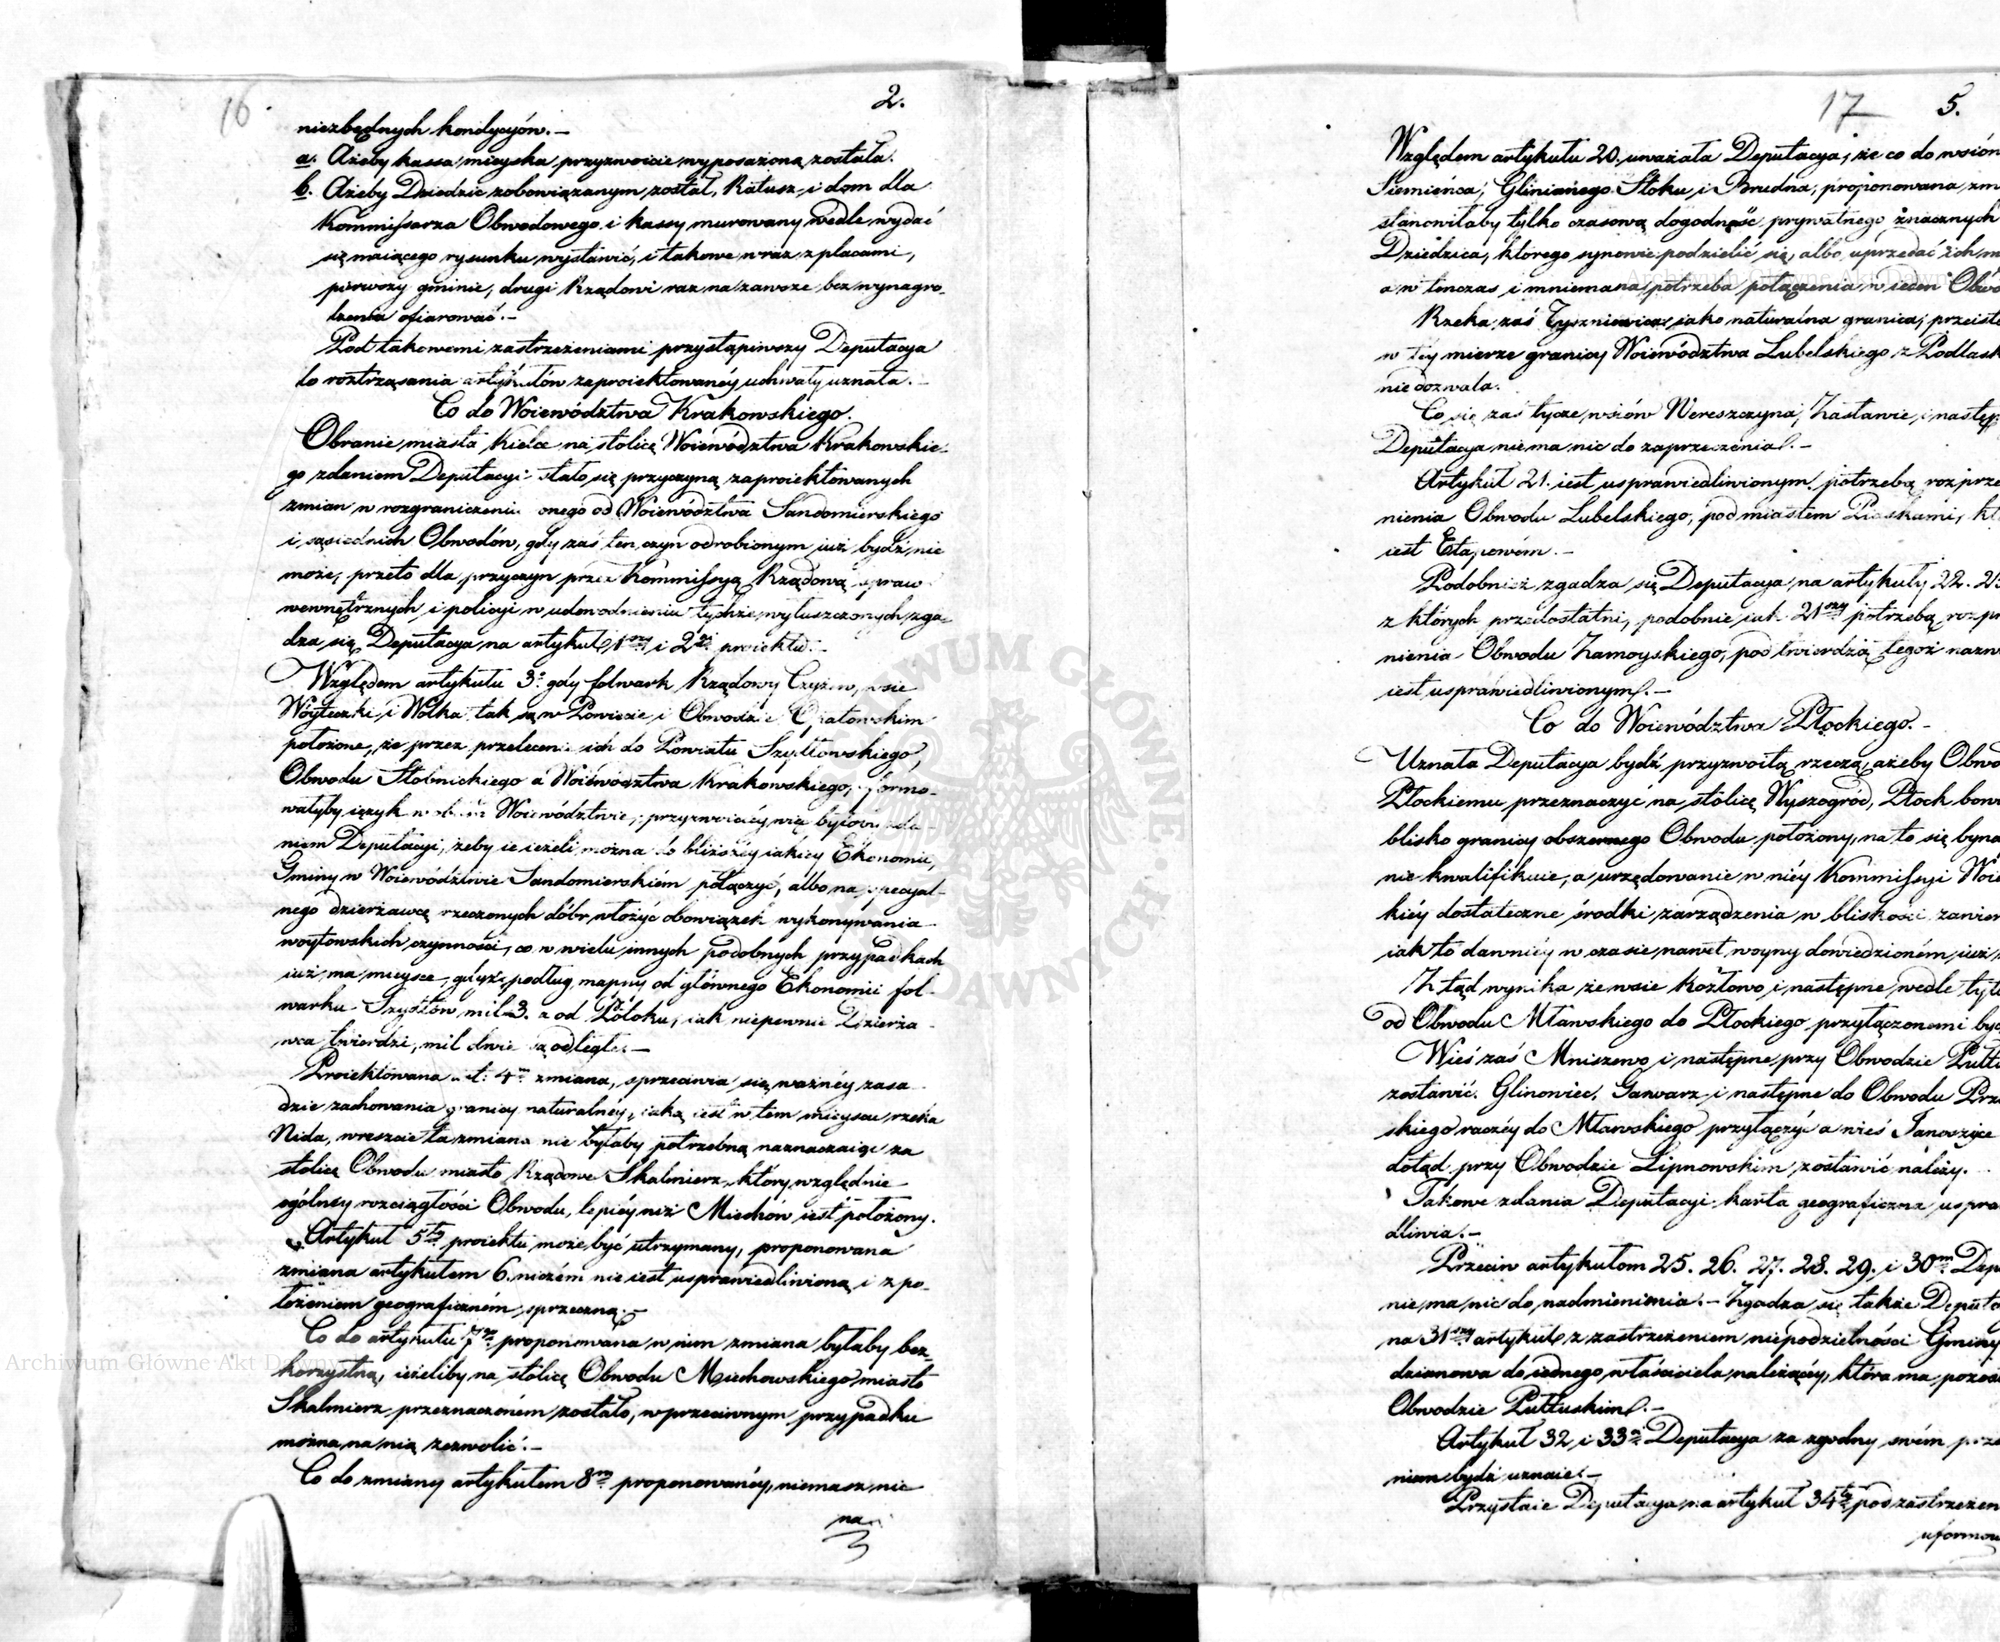 16 2.
niezbędnych kondycyów.—
a. Ażeby kassa mieyska przyzwoicie wyposażoną została.
b. Ażeby Dziedzic zobowiązanym został, Ratusz i dom dla
Kommissarza Obwodowego i kassy murowany wedle wydać
się maiącego rysunku wystawić, i takowe wraz z placami,
pierwszy gminie, drugi Rządowi raz na zawsze bez wynagro-
dzenia ofiarować.—
Pod takowemi zastrzeżeniami przystąpiwszy Deputacya
do roztrząsania artykułów zaproiektowanéy uchwały uznała.—
Co do Woiewództwa Krakowskiego.
Obranie miasta Kielce na stolicę Woiewództwa Krakowskie-
go zdaniem Deputacyi stało się przyczyną zaproiektowanych
zmian w rozgraniczeniu onego od Woiewództwa Sandomierskiego
i sąsiednich Obwodów, gdy zaś ten czyn odrobionym iuż bydź nie
może, przeto dla przyczyn przez Kommissyą Rządową spraw
wewnętrznych i policyi w udowodnieniu tychże wyłuszczonych zga-
dza się Deputacya na artykuł 1szy i 2gi proiektu.—
Względem artykułu 3o gdy folwark Rządowy Czyżów, wsie
Woyteczki i Wolka tak są w Powiecie i Obwodzie Opatowskim
położone, że przez przelecenie ich do Powiatu Szydłowskiego,
Obwodu Stobnickiego a Woiewództwa Krakowskiego, formo-
wałyby ięzyk w Woiewództwie, przyzwoiciéy więc byłoby zda-
niem Deputacyi, żeby ie ieżeli można do bliższéy iakiéy Ekonomii,
Gminy w Woiewództwie Sandomierskiém połączyć, albo na specyal-
nego dzierżawcę rzeczonych dóbr włożyć obowiązek wykonywania
woytowskich czynności, co w wielu innych podobnych przypadkach
iuż ma mieysce, gdyż podług mappy od głównego Ekonomii fol-
warku Szydłów mil 3. a od Potoku, iak niepewnie Dzierża-
wca twierdzi, mil dwie są odległe.—
Proiektowana art: 4m zmiana, sprzeciwia się ważnéy zasa-
dzie zachowania granicy naturalnéy, iaką iest w tem mieyscu rzeka
Nida, wreszcie ta zmiana nie byłaby potrzebną naznaczaiąc za
stolicę Obwodu miasto Rządowe Skalmierz, który względnie
ogólnéy rozciągłości Obwodu, lepiéy niż Miechów iest położony.
Artykuł 5ty proiektu może być utrzymany, proponowana
zmiana artykułem 6. niczém nie iest usprawiedliwioną i z po-
łożeniem geograficzném sprzeczną.—
Co do artykułu 7go proponowana w nim zmiana byłaby bez-
korzystną, ieżeliby na stolicę Obwodu Miechowskiego miasto
Skalmierz przeznaczoném zostało, w przeciwnym przypadku
można na nią zezwolić.—
Co do zmiany artykułem 8m proponowanéy, niemasz nic
na
17 5.
Względem artykułu 20. uważała Deputacya, że co do wsiów
Siemieńca, Gliniańego Stoku i Brudna, proponowana zm
stanowiłaby tylko czasową dogodność prywatnego znacznych
Dziedzica, którego synowie podzielić się, albo uprzedać ich m
a w tenczas i mniemana potrzeba połączenia w ieden Obwó
Rzeka zaś Tyszmienica iako naturalna granica, przeisto
w téy mierze granicy Woiewództwa Lubelskiego z Podlask
niedozwala.
Co się zaś tycze wsiów Wereszczyna, Zastawie i następ
Deputacya niema nic do zaprzeczenia.—
Artykuł 21. iest usprawiedliwionym potrzebą rozprze
nienia Obwodu Lubelskiego, pod miastem Piaskami, kt
iest Etapowém.—
Podobnież zgadza się Deputacya na artykuły 22. 23
z których przedostatni, podobnie iak 21szy potrzebą rozp
nienia Obwodu Zamoyskiego, pod twierdzą tegoż nazw
iest usprawiedliwionym.—
Co do Woiewództwa Płockiego.—
Uznała Deputacya bydź przyzwoitą rzeczą, ażeby Obwo
Płockiemu przeznaczyć na stolicę Wyszogród, Płock bow
blisko granicy obszernego Obwodu położony, na to się byna
nie kwalifikuie, a urzędowanie w niéy Kommissyi Woie
kiéy dostateczne środki zarządzenia w bliskości zawier
iak to dawniéy w czasie nawet woyny dowiedzioném iuż
Ztąd wynika że wsie Kozłowo i następne wedle tyt
od Obwodu Mławskiego do Płockiego przyłączonemi być
Wieś zaś Mniszewo i następne przy Obwodzie Pułtu
zostawić. Glinowiec, Gawarz i następne do Obwodu Prza
skiego raczéy do Mławskiego przyłączyć a wieś Janoszyce
dotąd przy Obwodzie Lipnowskim zostawić należy.
Takowe zdania Deputacyi karta geograficzna uspra
dliwia.—
Przeciw artykułom 25. 26. 27. 28. 29. i 30m Dep
nie ma nic do nadmienienia.— Zgadza się także Deputa
na 31szy artykuł z zastrzeżeniem niepodzielności Gminy
dzianowa do iednego właściciela należącéy, która ma pozos
Obwodzie Pułtuskim.—
Artykuł 32 i 33ci Deputacya za zgodny swém prze
niem bydź uznaie.—
Przystaie Deputacya na artykuł 34ty pod zastrzeżen
uformow
Archiwum Główne Akt Dawny
Archiwum Główne Akt Dawny
ARCHIWUM GŁÓWNE AKT DAWNYCH